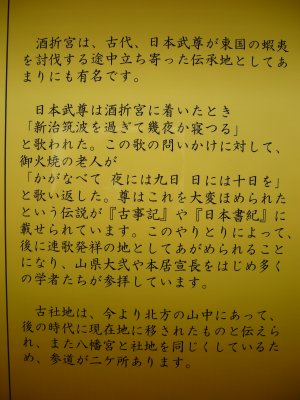 酒折宮は、古代、日本武尊が東国の蝦夷
を討伐する途中立ち寄った伝承地としてあ
まりにも有名です。
日本武尊は酒折宮に着いたとき
「新治筑波を過ぎて幾夜か寝つる」
と歌われた。この歌の問いかけに対して、
御火焼の老人が
「かがなべて 夜には九日 日には十日を」
と歌い返した。尊はこれを大変ほめられた
という伝説が『古事記』や『日本書紀』に
載せられています。このやりとりによって、
後に連歌発祥の地としてあがめられること
になり、山県大弐や本居宣長をはじめ多く
の学者たちが参拝しています。
古社地は、今より北方の山中にあって、
後の時代に現在地に移されたものと伝えら
れ、また八幡宮と社地を同じくしているた
め、参道が二ケ所あります。